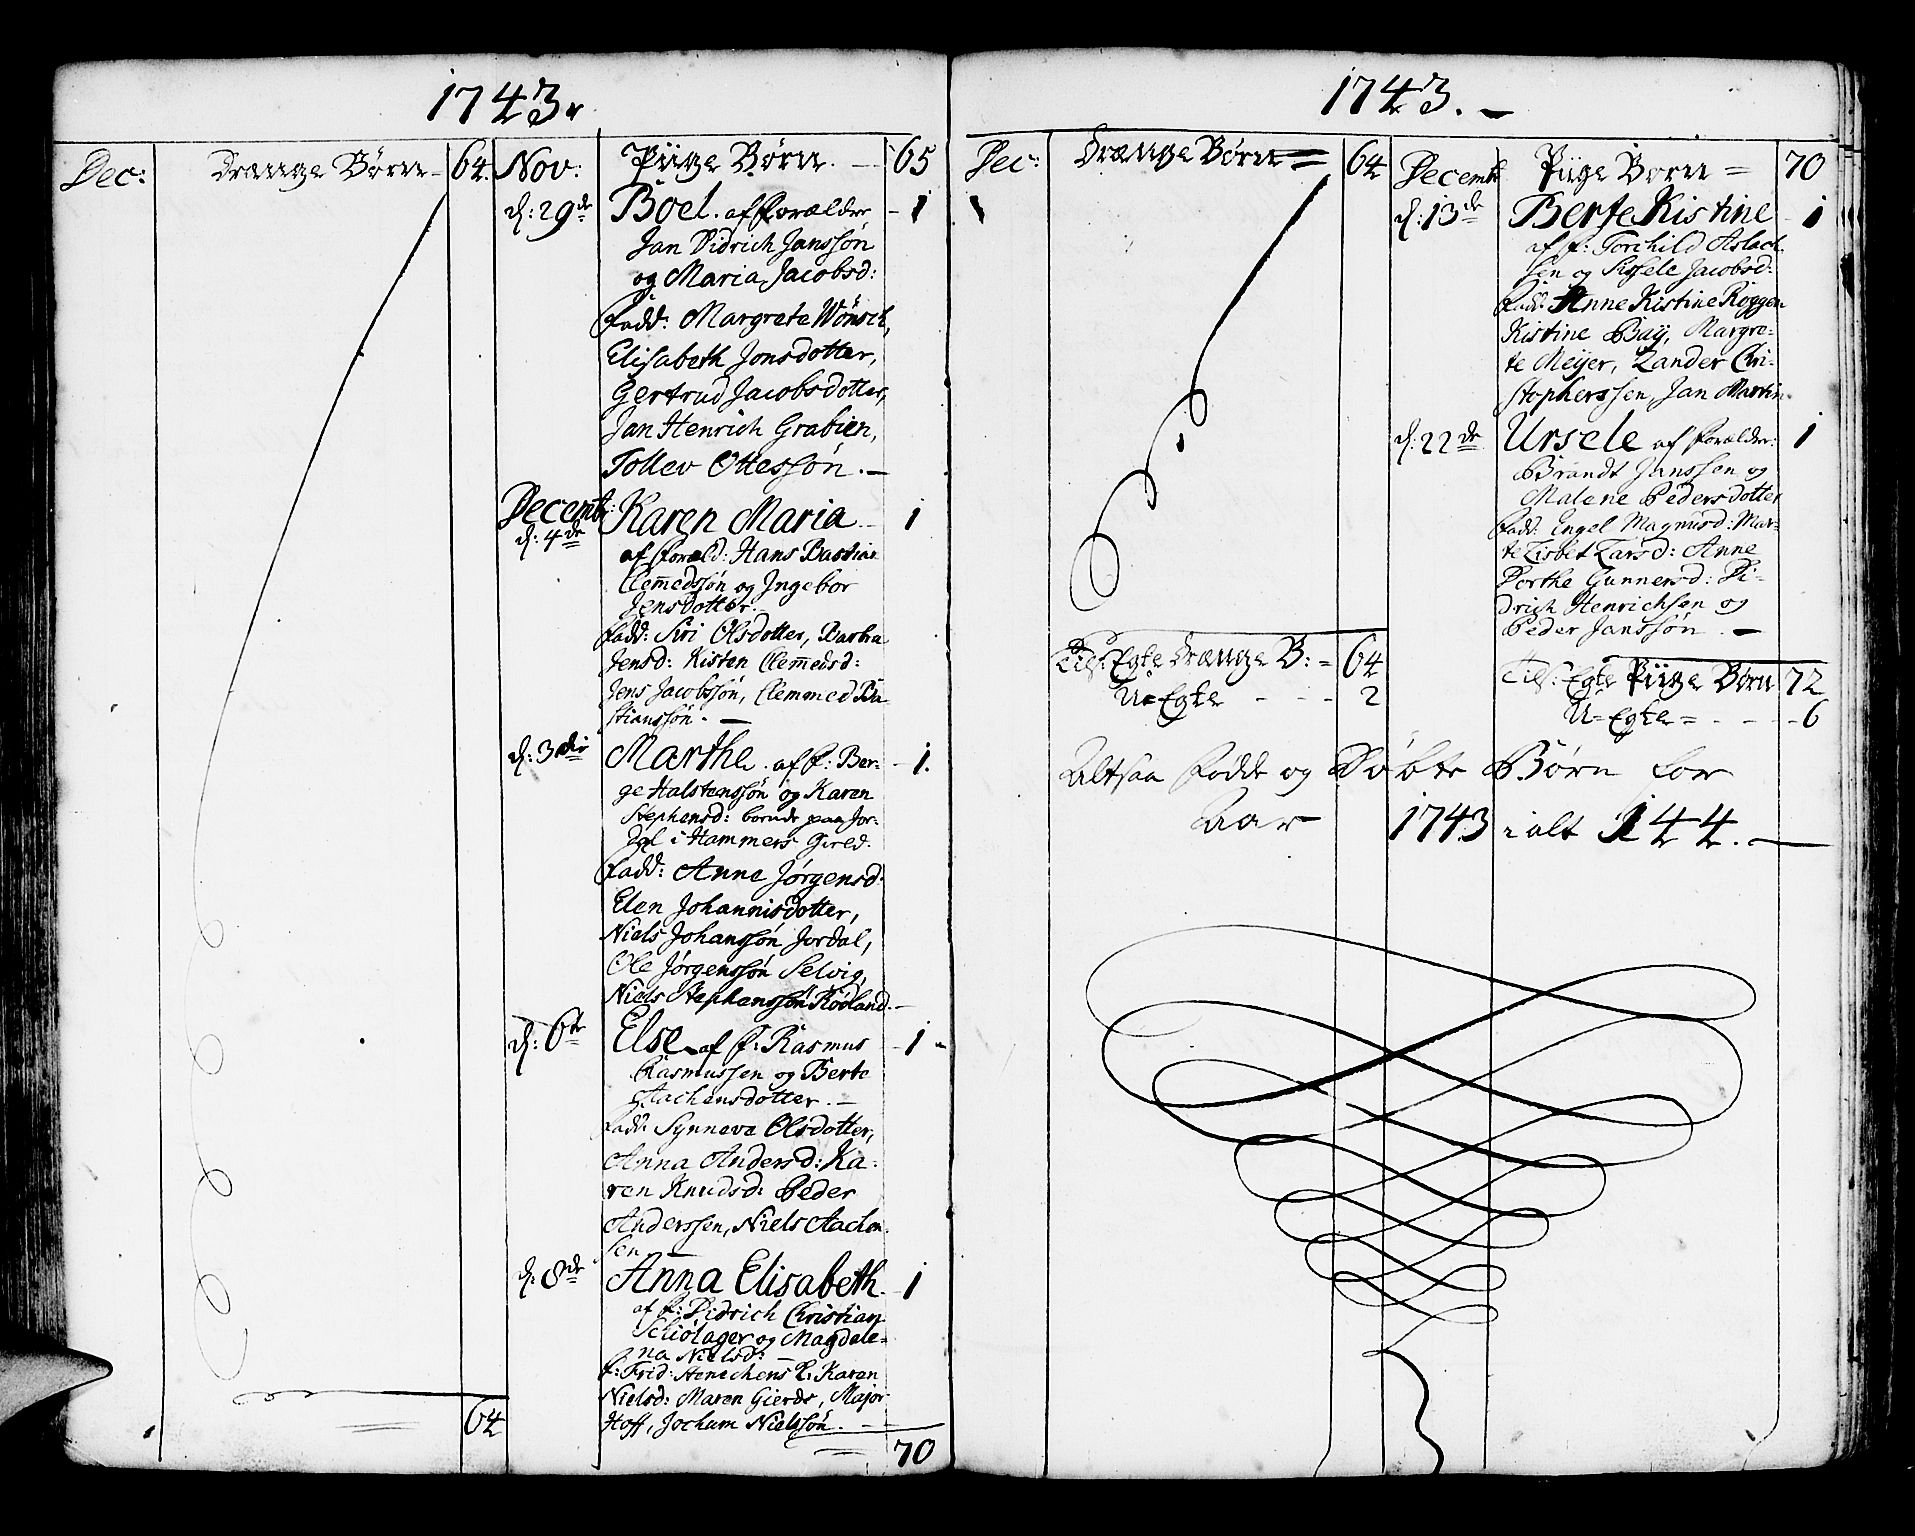 1743.
Dec: Drænge Børn - 64. Nov: Piige Børn. - 65
d: 29de Boel. af Forældre - 1
Jan Didrich Janssøn
og Maria Jacobsd:
Fadd: Margrete Wønsch,
Elisabeth Jonsdotter,
Gertrud Jacobsdotter,
Jan Henrich Grabien,
Tollev Ottessøn. -
Decembr: Karen Maria - 1
d: 4de af Foræld: Hans Bastian
Clemedssøn og Ingebor
Jensdotter.
Fadd: Siri Olsdotter, Barbra
Jensd: Kisten Clemedsd:
Jens Jacobssøn, Clemmed Ba
stianssøn. -
d: 3die Marthe. af F: Ber- - 1.
ge Halstenssøn og Karen
Stephensd: boende paa Jor-
dal i Hammers Gield.
Fadd: Anne Jørgensd:
Elen Johannisdotter,
Niels Johanssøn Jordal,
Ole Jørgenssøn Selvig,
Niels Stephenssøn Rødland. -
d: 6te Else. af F: Rasmus - 1 -
Rasmussen og Berte
Aachensdotter. -
Fadd: Synneve Olsdotter,
Anna Andersd: Ka-
ren Knudsd: Peder
Anderssen, Niels Aachen
sen. -
d: 8de Anna Elisabeth. - 1
af F: Didrich Christian
Schiøtager og Magdale-
na Nielsd:
F: Frid: Henchens K: Karen
Nielsd: Maren Gierds, Major
Hoff, Jochum Nielssøn. -
64 70
1743. -
Dec: Drænge Børn = 64 Decembr Piige Børn = 70
d: 13de Berte Kistine - 1
af F: Torchild Aslach
sen og Sissele Jacobsd:
Fadd: Anne Kistine Roggen
Kistine Baÿ, Margre-
te Meÿer, Zander Chri-
stopherssen, Jan Martin
d: 22de Ursele af Forælder: 1
Brandt Janssen og
Malene Pedersdotter
Fadd: Engel Magnusd: Mar-
te Lisbet Larsd: Anne
Dorthe Gunnersd: Di-
drich Henrichsen og
Peder Janssøn. -
Tils: Egte Drænge B: = 64
U-Egte - - - 2
Tils: Egte Piige Børn 72
U-Egte = - - - 6
Altsaa Fødde og Døbte Børn for
Aar 1743 i alt 144. -